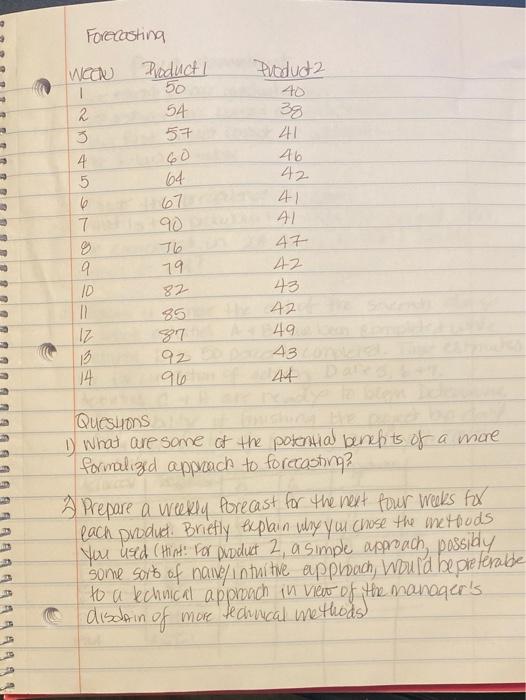 Forecasting
Week Product 1 Product 2
1 50 40
2 54 38
3 57 41
4 60 46
5 64 42
6 67 41
7 90 41
8 76 47
9 79 42
10 82 43
11 85 42
12 87 49
13 92 43
14 96 44
Questions
1) What are some of the potential benefits of a more
formalized approach to forecasting?
2) Prepare a weekly forecast for the next four weeks for
each product. Briefly explain why you chose the methods
you used (Hint: For product 2, a simple approach, possibly
some sort of naive/intuitive approach, would be preferable
to a technical approach in view of the manager's
disdain of more technical methods)